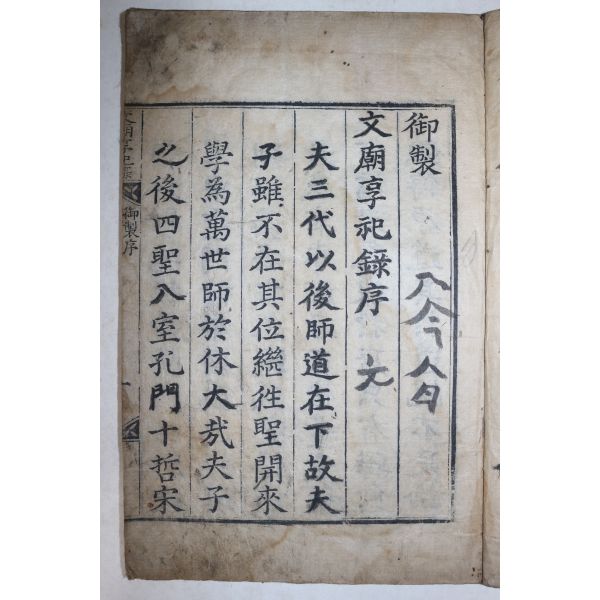 御製
文廟享祀錄序 元
夫三代以後師道在下故夫
子雖不在其位繼徃聖開來
學為萬世師於休大哉夫子
之後四聖入室孔門十哲宋
御製序